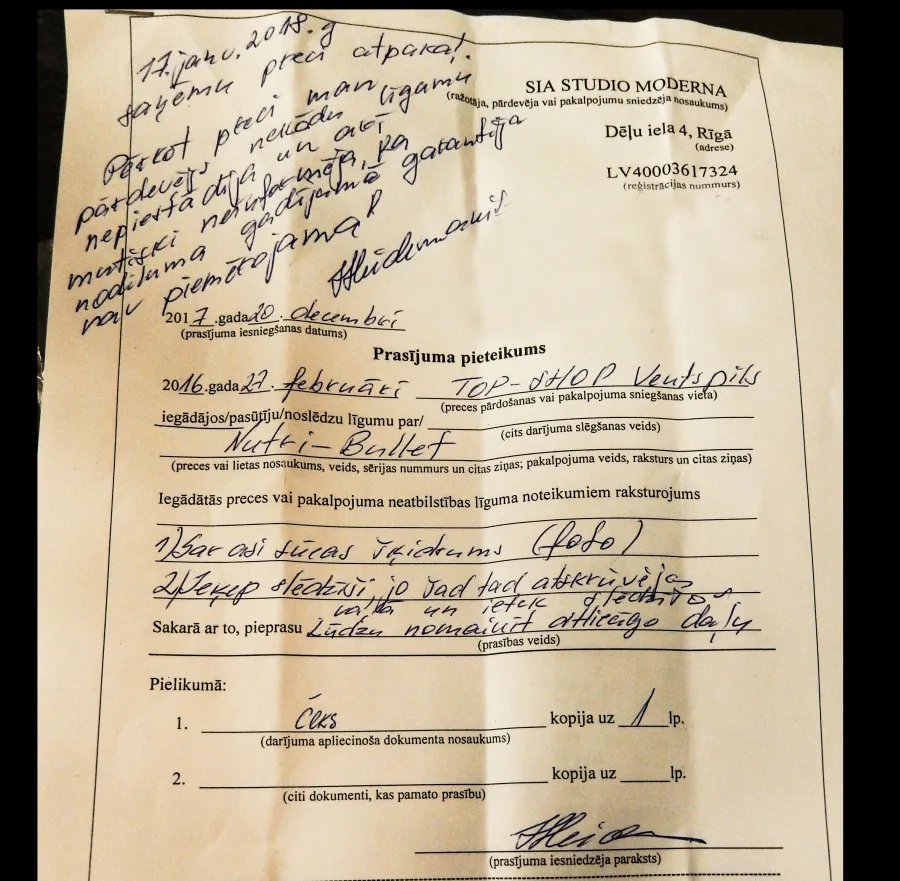 17. janv. 2018. g
saņemu preci atpakaļ.
Pērkot preci man
pārdevējs nekādu līgumu
nepiestādīja un arī
mutiski neinformēja, ka
nodiluma gadījumā garantija
nav piemērojama!
SIA STUDIO MODERNA
(ražotāja, pārdevēja vai pakalpojumu sniedzēja nosaukums)
Dēļu iela 4, Rīgā
(adrese)
LV40003617324
(reģistrācijas nummurs)
2017.gada 20. decembrī
(prasījuma iesniegšanas datums)
Prasījuma pieteikums
2016.gada 27. februārī TOP-SHOP Ventspils
(preces pārdošanas vai pakalpojuma sniegšanas vieta)
iegādājos/pasūtīju/noslēdzu līgumu par/
(cits darījuma slēgšanas veids)
Nutri-Bullet
(preces vai lietas nosaukums, veids, sērijas nummurs un citas ziņas; pakalpojuma veids, raksturs un citas ziņas)
Iegādātās preces vai pakalpojuma neatbilstības līguma noteikumiem raksturojums
1) Gar asi sūcas šķidrums (foto)
2) Ieķep slēdzīši, jo šad tad atskrūvējas
vaļā un ietek slēdzīšos
Sakarā ar to, pieprasu Lūdzu nomainīt attiecīgo daļu
(prasības veids)
Pielikumā:
1. Čeks kopija uz 1 lp.
(darījuma apliecinoša dokumenta nosaukums)
2. kopija uz lp.
(citi dokumenti, kas pamato prasību)
(prasījuma iesniedzēja paraksts)